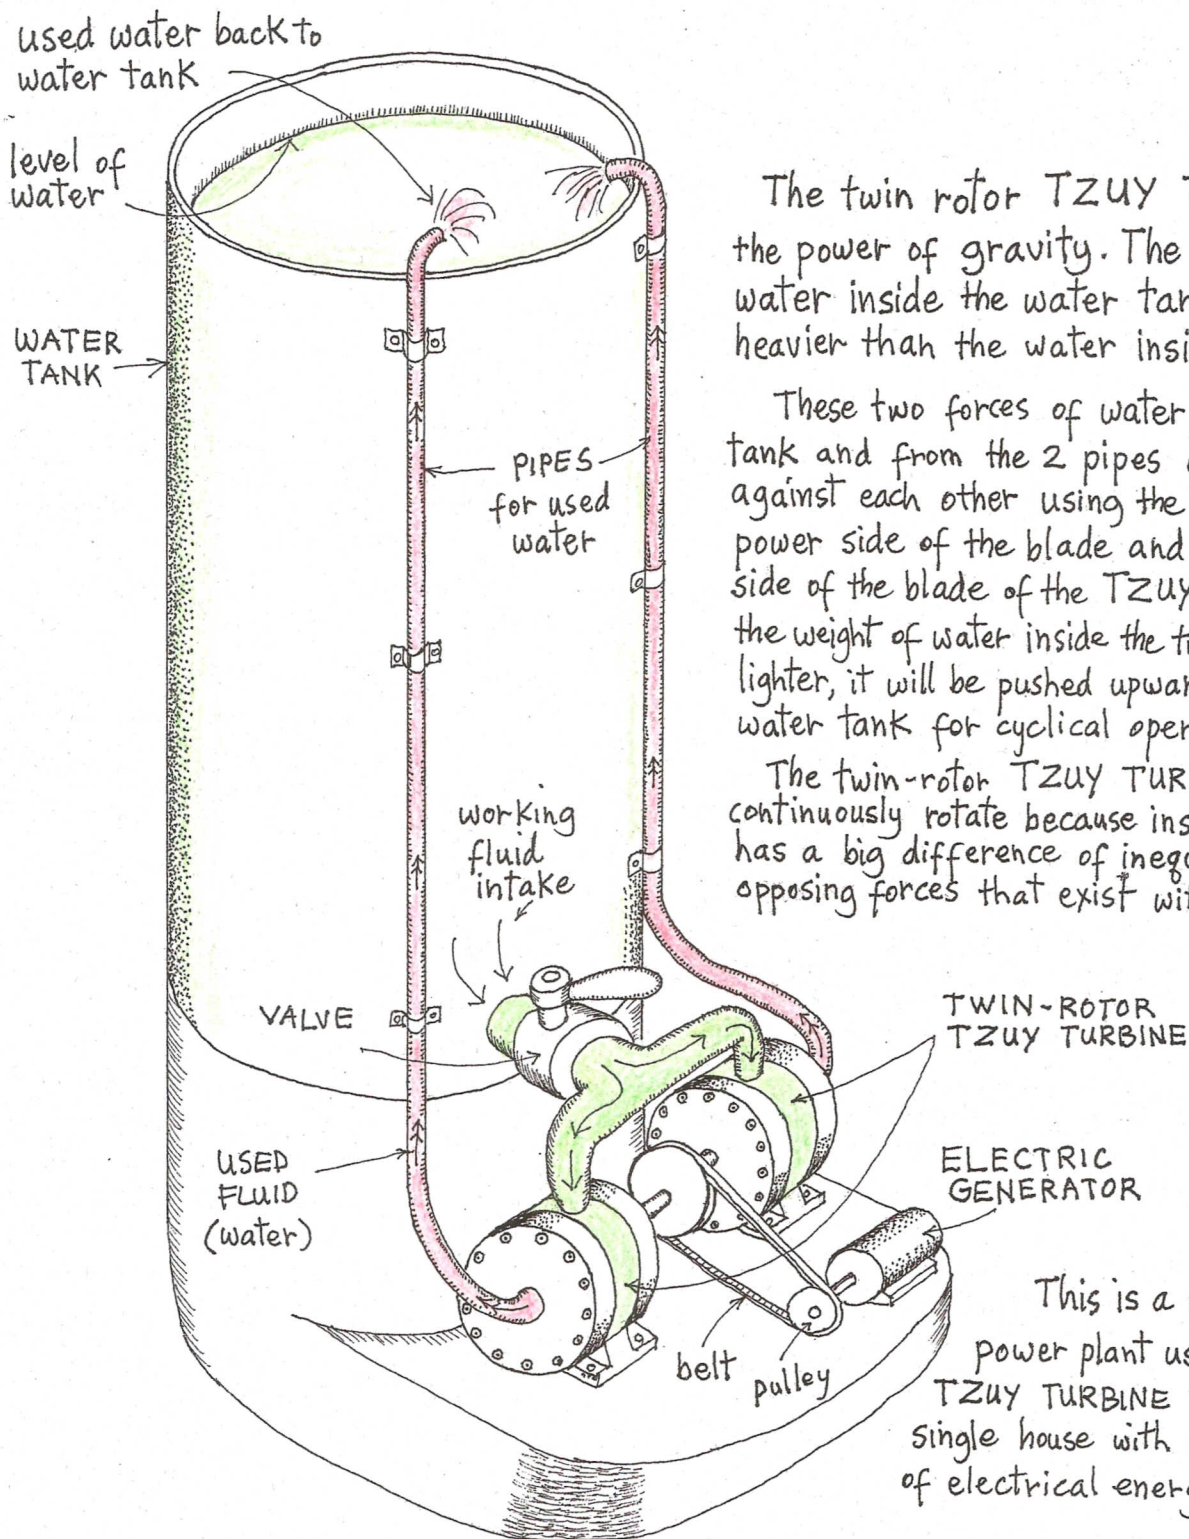 used water back to
water tank
level of
water
WATER
TANK
PIPES
for used
water
working
fluid
intake
VALVE
USED
FLUID
(water)
The twin rotor TZUY
the power of gravity. The
water inside the water tan
heavier than the water insi
These two forces of water
tank and from the 2 pipes
against each other using the
power side of the blade and
side of the blade of the TZUY
the weight of water inside the
lighter, it will be pushed upwar
water tank for cyclical oper
The twin-rotor TZUY TUR
continuously rotate because ins
has a big difference of inequ
opposing forces that exist wit
TWIN-ROTOR
TZUY TURBINE
ELECTRIC
GENERATOR
belt
pulley
This is a
power plant us
TZUY TURBINE
single house with
of electrical energ